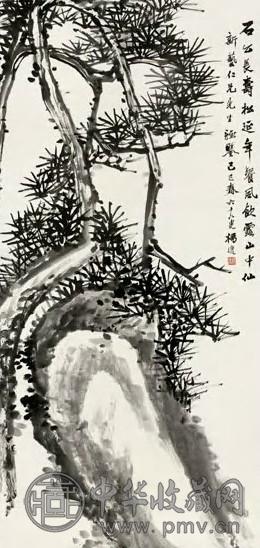 石公長壽松延年餐風飲露山中仙
新藝仁兄先生 鑒己巳春六十八叟楊逸
中华收藏网
www.pmv.cn